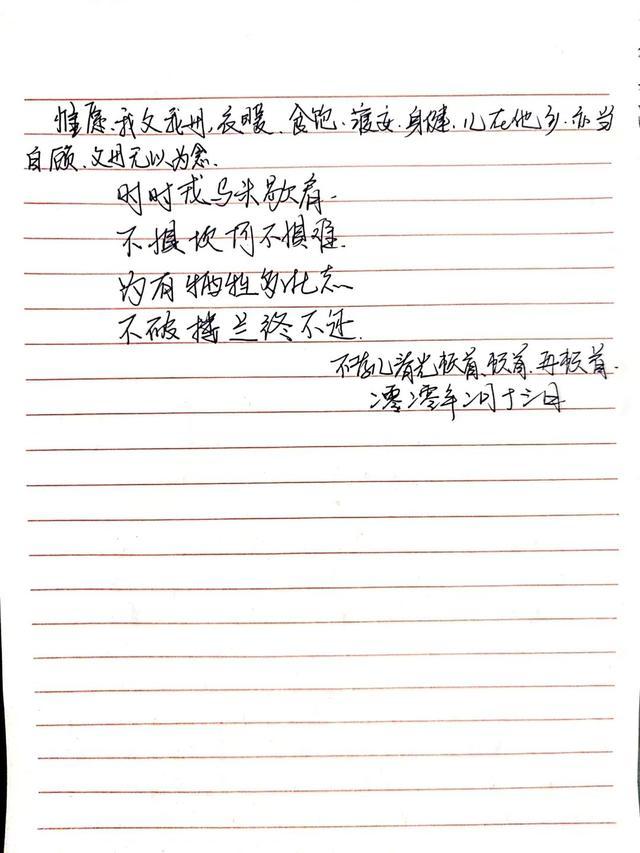 惟愿、我父我母,衣暖、食饱、寝安、身健,儿在他乡,亦当
自顾、父母无以为念.
时时戎马未歇肩.
不惧坎坷不惧难.
为有牺牲多壮志
不破楼兰终不还.
不孝儿清光顿首、顿首、再顿首.
二零二零年二月十三日